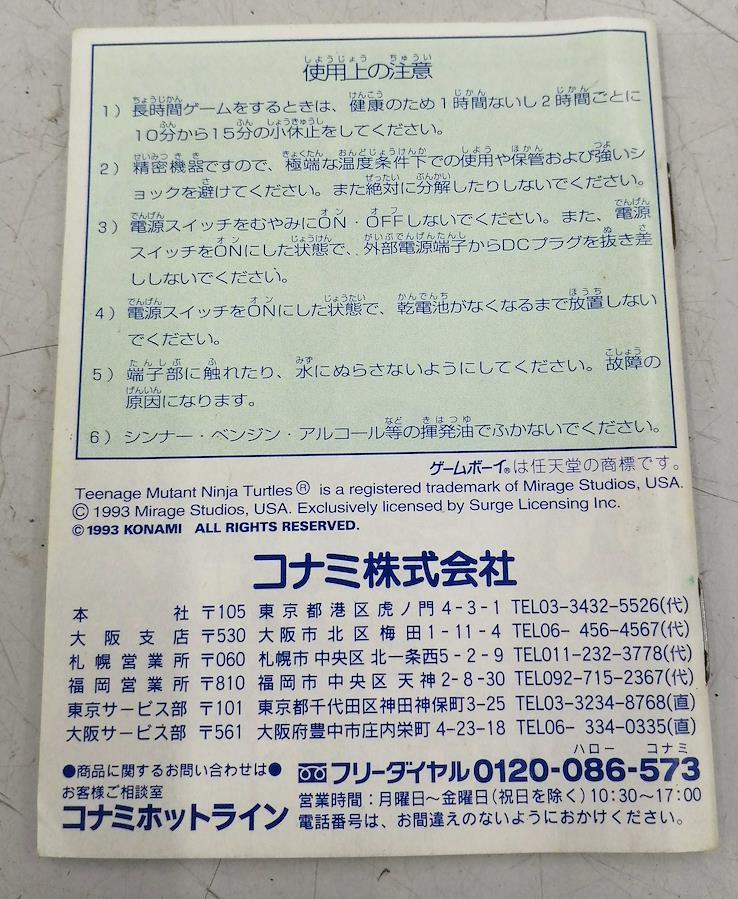 使用上の注意
1）長時間ゲームをするときは、健康のため1時間ないし2時間ごとに
10分から15分の小休止をしてください。
2）精密機器ですので、極端な温度条件下での使用や保管および強いシ
ョックを避けてください。また絶対に分解したりしないでください。
3）電源スイッチをむやみにON・OFFしないでください。また、電源
スイッチをONにした状態で、外部電源端子からDCプラグを抜き差
ししないでください。
4）電源スイッチをONにした状態で、乾電池がなくなるまで放置しない
でください。
5）端子部に触れたり、水にぬらさないようにしてください。故障の
原因になります。
6）シンナー・ベンジン・アルコール等の揮発油でふかないでください。
ゲームボーイ®は任天堂の商標です。
Teenage Mutant Ninja Turtles® is a registered trademark of Mirage Studios, USA.
© 1993 Mirage Studios, USA. Exclusively licensed by Surge Licensing Inc.
© 1993 KONAMI ALL RIGHTS RESERVED.
コナミ株式会社
本社 〒105 東京都港区虎ノ門4-3-1 TEL03-3432-5526(代)
大阪支店 〒530 大阪市北区梅田1-11-4 TEL06- 456-4567(代)
札幌営業所 〒060 札幌市中央区北一条西5-2-9 TEL011-232-3778(代)
福岡営業所 〒810 福岡市中央区天神2-8-30 TEL092-715-2367(代)
東京サービス部 〒101 東京都千代田区神田神保町3-25 TEL03-3234-8768(直)
大阪サービス部 〒561 大阪府豊中市庄内栄町4-23-18 TEL06- 334-0335(直)
●商品に関するお問い合わせは●
お客様ご相談室
コナミホットライン
ハロー コナミ
フリーダイヤル0120-086-573
営業時間：月曜日〜金曜日(祝日を除く)10:30〜17:00
電話番号は、お間違えのないようにおかけください。